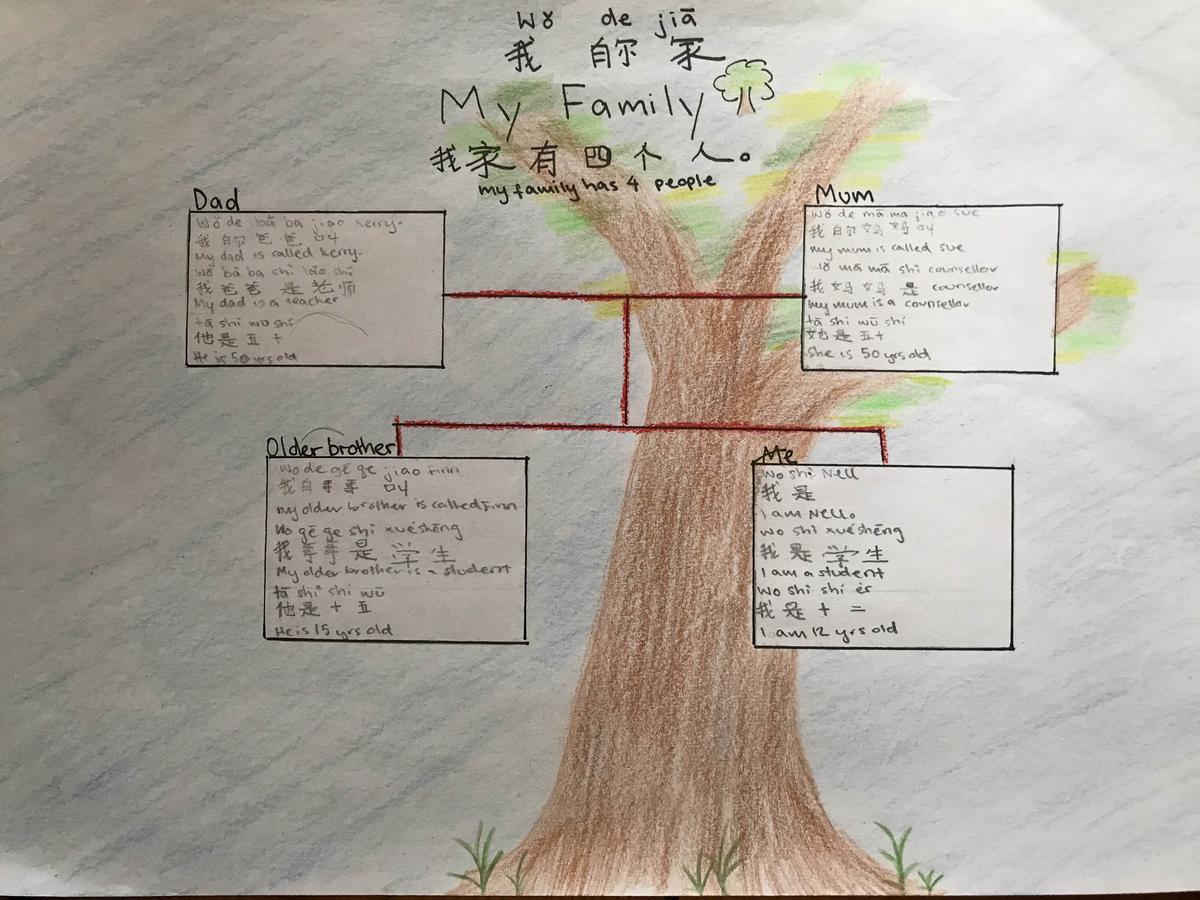 Wǒ de jiā
我 的 家
My Family
我家有四个人。
my family has 4 people
Dad
Wǒ de bà ba jiao kerry.
我的爸爸叫
My dad is called kerry.
wǒ bà ba shì lǎo shī
我爸爸是老师
My dad is a teacher
tā shì wǔ shí
他是五十
He is 50 yrs old
Mum
Wǒ de mā ma jiào sue
我的妈妈叫
my mum is called sue
wǒ mā mā shì counsellor
我妈妈是 counsellor
my mum is a counsellor
tā shì wǔ shí
她是五十
she is 50 yrs old
Older brother
Wo de gē ge jiao Finn
我 哥哥 叫
my older brother is called Finn
Wo gē ge shì xuéshēng
我哥哥是学生
My older brother is a student
tā shì shí wǔ
他是十五
He is 15 yrs old
Me
Wo shì Nell
我是
I am Nell.
wo shì xuéshēng
我是学生
I am a student
Wo shì shí èr
我是十二
I am 12 yrs old